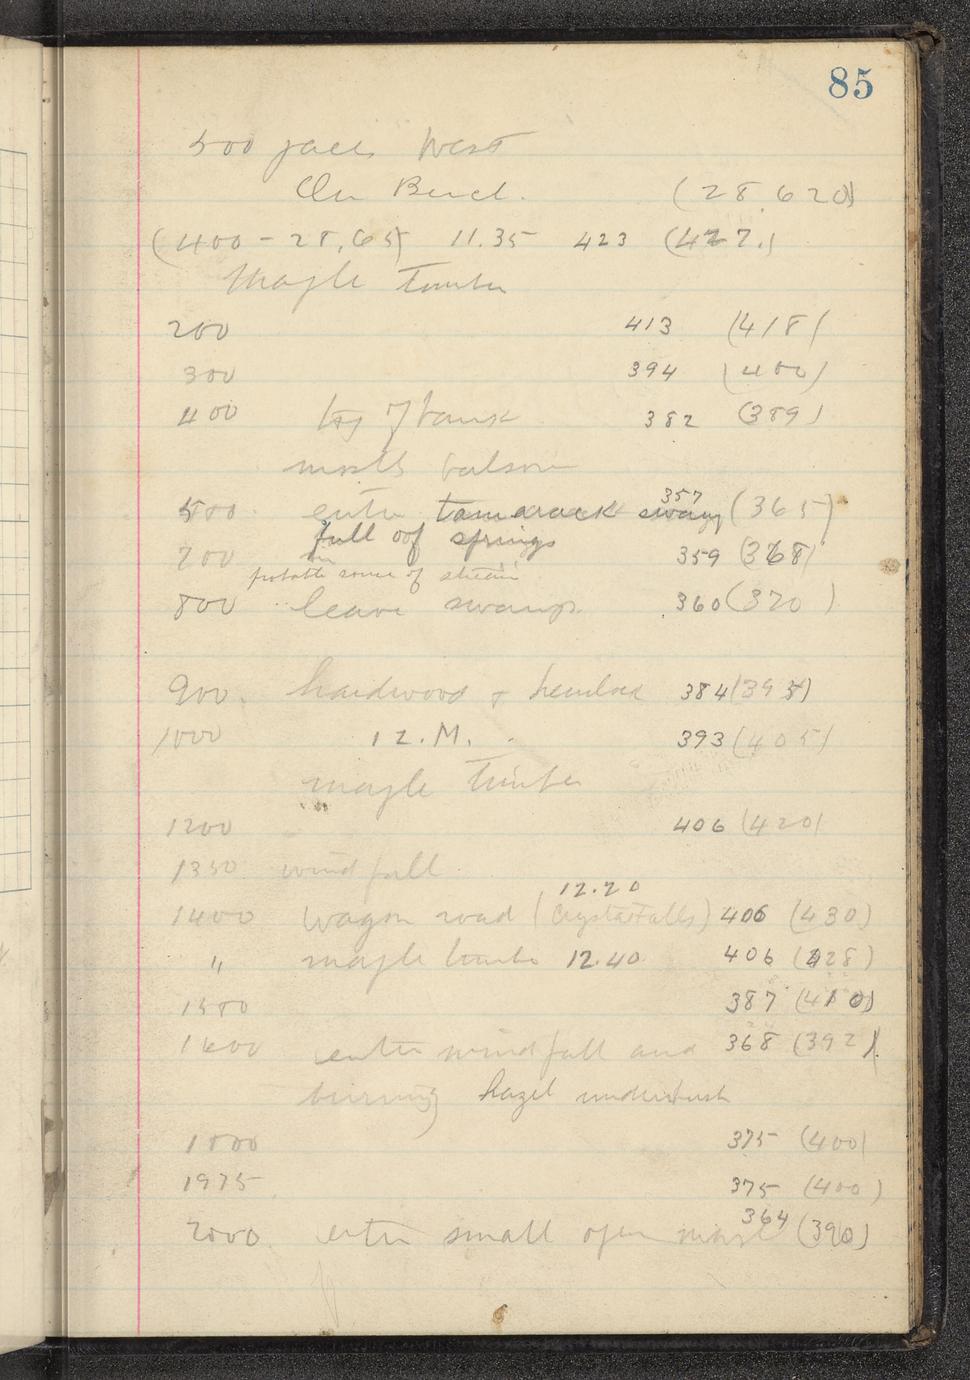 85
500 paces West
On Bench. (28.620)
(400 - 28,65) 11.35 423 (427.)
Maple timber
200 413 (418)
300 394 (400)
400 top of bank 382 (389)
mostly balsam
500 enter tamarack swamp 357 (365)
full of springs
700 359 (368)
probable source of stream
800 leave swamp 360 (370)
900. hardwood + hemlock 384 (395)
1000 12. M. 393 (405)
maple timber
1200 406 (420)
1350 windfall
12.20
1400 wagon road (Crystal Falls) 406 (430)
" maple timber 12.40 406 (428)
1500 387 (410)
1600 enter windfall and 368 (392)
burning hazel underbrush
1800 375 (400)
1975 375 (400)
2000 enter small open marsh 364 (390)